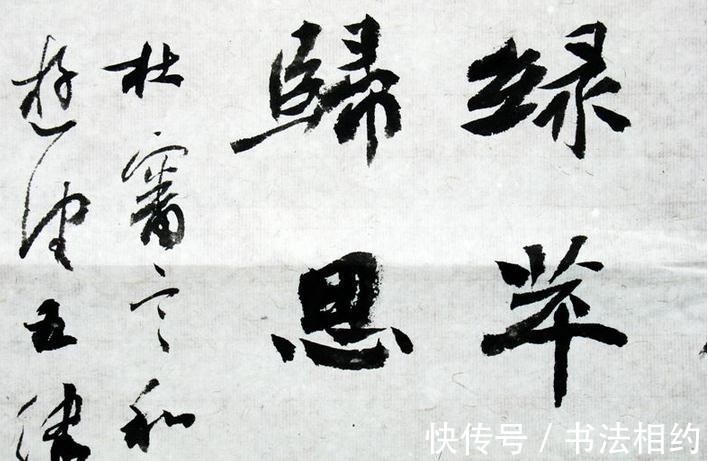 绿苹
歸思
杜審言和
遊望五律
快传号 / 书法相约